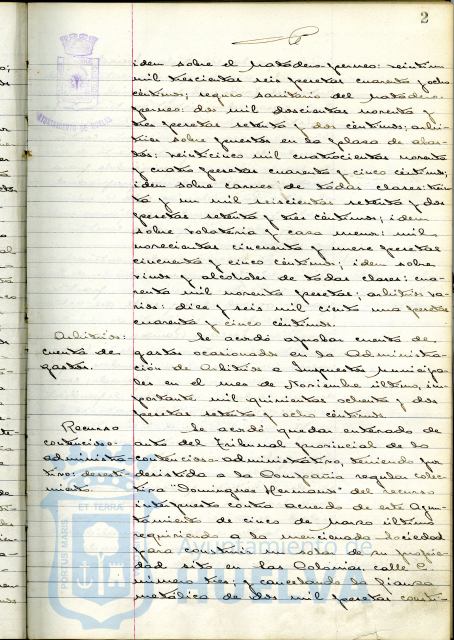 2
idem sobre el matadero perneo: veintiun
mil trescientas seis pesetas cuarenta y ocho
céntimos; seguro sanitario del matadero
perneo: dos mil doscientas noventa y
tres pesetas setenta y dos céntimos; arbi-
trios sobre puestos en la plaza de abas-
tos: veinticinco mil cuatrocientas noventa
y cuatro pesetas cuarenta y cinco céntimos;
idem sobre carnes de todas clases: trein-
ta y un mil seiscientas setenta y dos
pesetas setenta y tres céntimos; idem
sobre volateria y caza menor: mil
novecientas cincuenta y nueve pesetas
cincuenta y cinco céntimos; idem sobre
vinos y alcoholes de todas clases: cua-
renta mil noventa pesetas; arbitrios va-
rios: diez y seis mil ciento una pesetas
cuarenta y cinco céntimos.
Arbitrios:
cuenta de
gastos.
Se acordó aprobar cuenta de
gastos ocasionados en la Administra-
ción de Arbitrios e Impuestos municipa-
les en el mes de Noviembre último, im-
portante mil quinientas ochenta y dos
pesetas setenta y ocho céntimos.
Recurso
contencioso-
administra-
tivo: desesti-
miento.
Se acordó quedar enterado de
auto del Tribunal provincial de lo
contencioso administrativo, teniendo por
desistido a la Compañia regular colec-
tiva "Dominguez Hermanos" del recurso
interpuesto contra acuerdo de este Ayun-
tamiento de cinco de Marzo último
requiriendo a la mencionada Sociedad
para construir un solar de su propie-
dad sito en las Colonias, calle C.
número tres; y cancelando la fianza
metálica de dos mil pesetas consti-
AYUNTAMIENTO DE HUELVA
PORTUS MARIS ET TERRAE
Ayuntamiento de
HUELVA